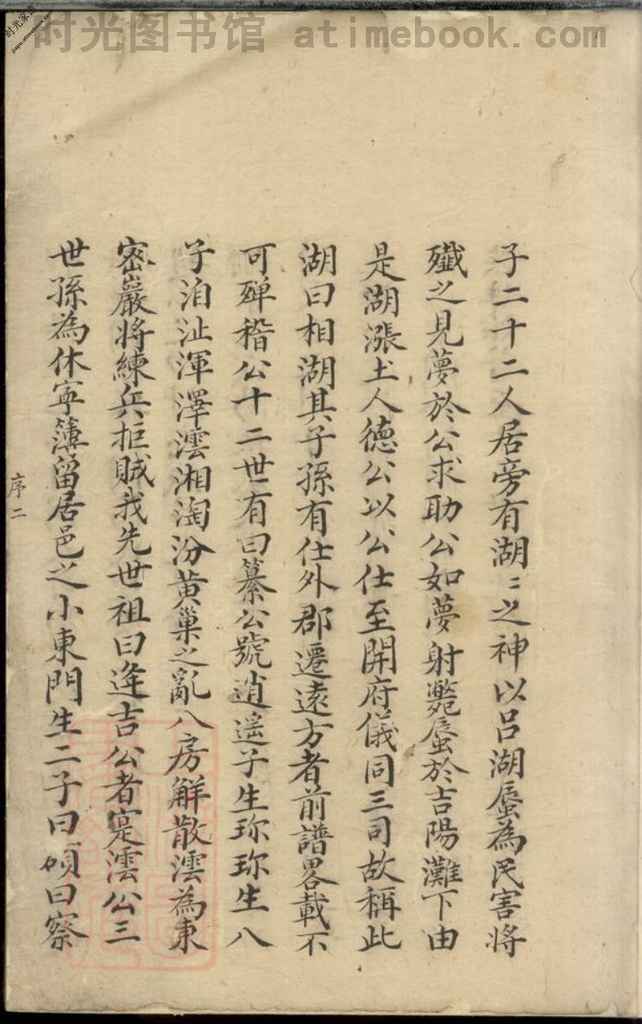 时光图书馆 atimebook.com
子二十二人居旁有湖〻之神以呂湖蜃為民害將
殲之見夢於公求助公如夢射斃蜃於吉陽灘下由
是湖漲土人德公以公仕至開府儀同三司故稱此
湖曰相湖其子孫有仕外郡遷遠方者前譜畧載不
可殫稽公十二世有曰纂公號逍遥子生珎珎生八
子洎沚渾澤澐湘淘汾黄巢之亂八房觧散澐為東
密巖將練兵拒賊我先世祖曰逄吉公者寔澐公三
世孫為休寧簿留居邑之小東門生二子曰碩曰察
序二